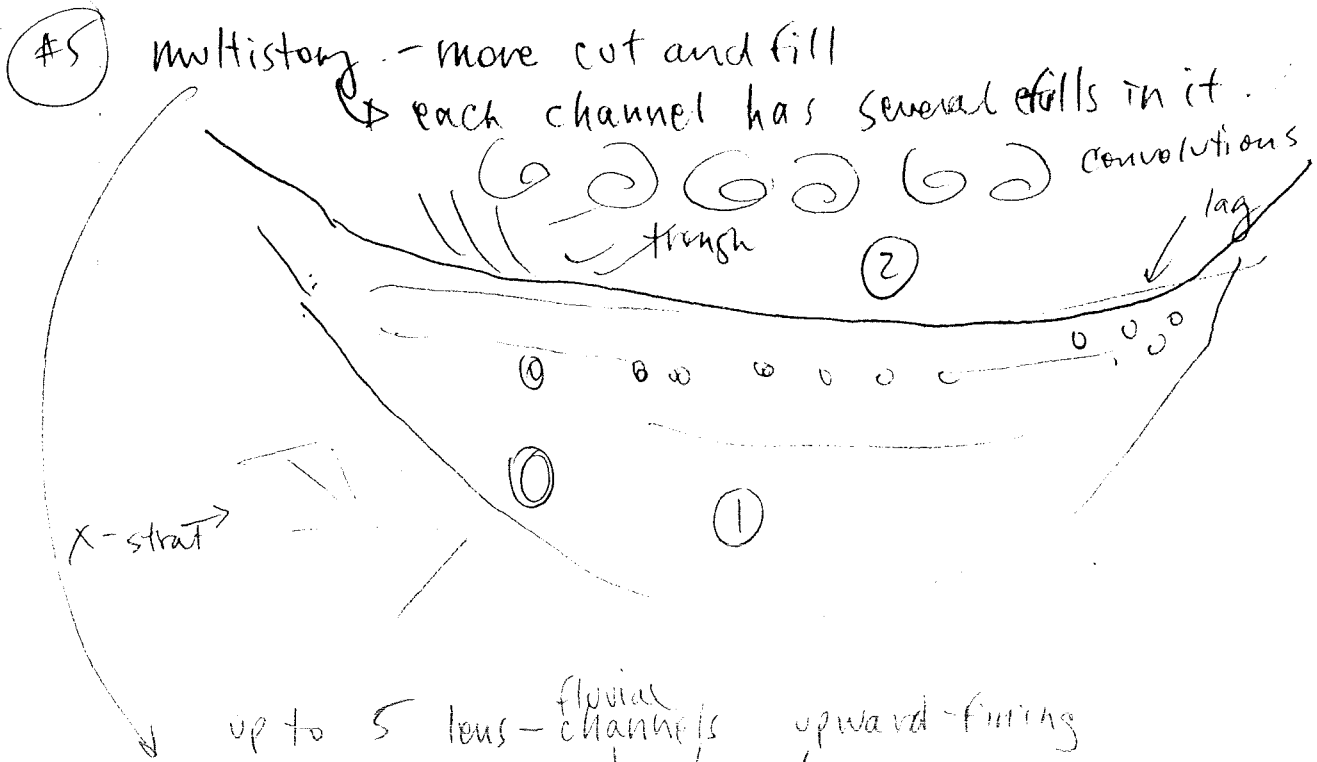 #5 multistory - more cut and fill
↳ each channel has several fills in it.
convolutions
lag
trough
2
1
x-strat →
fluvial
up to 5 lens - channels upward-fining